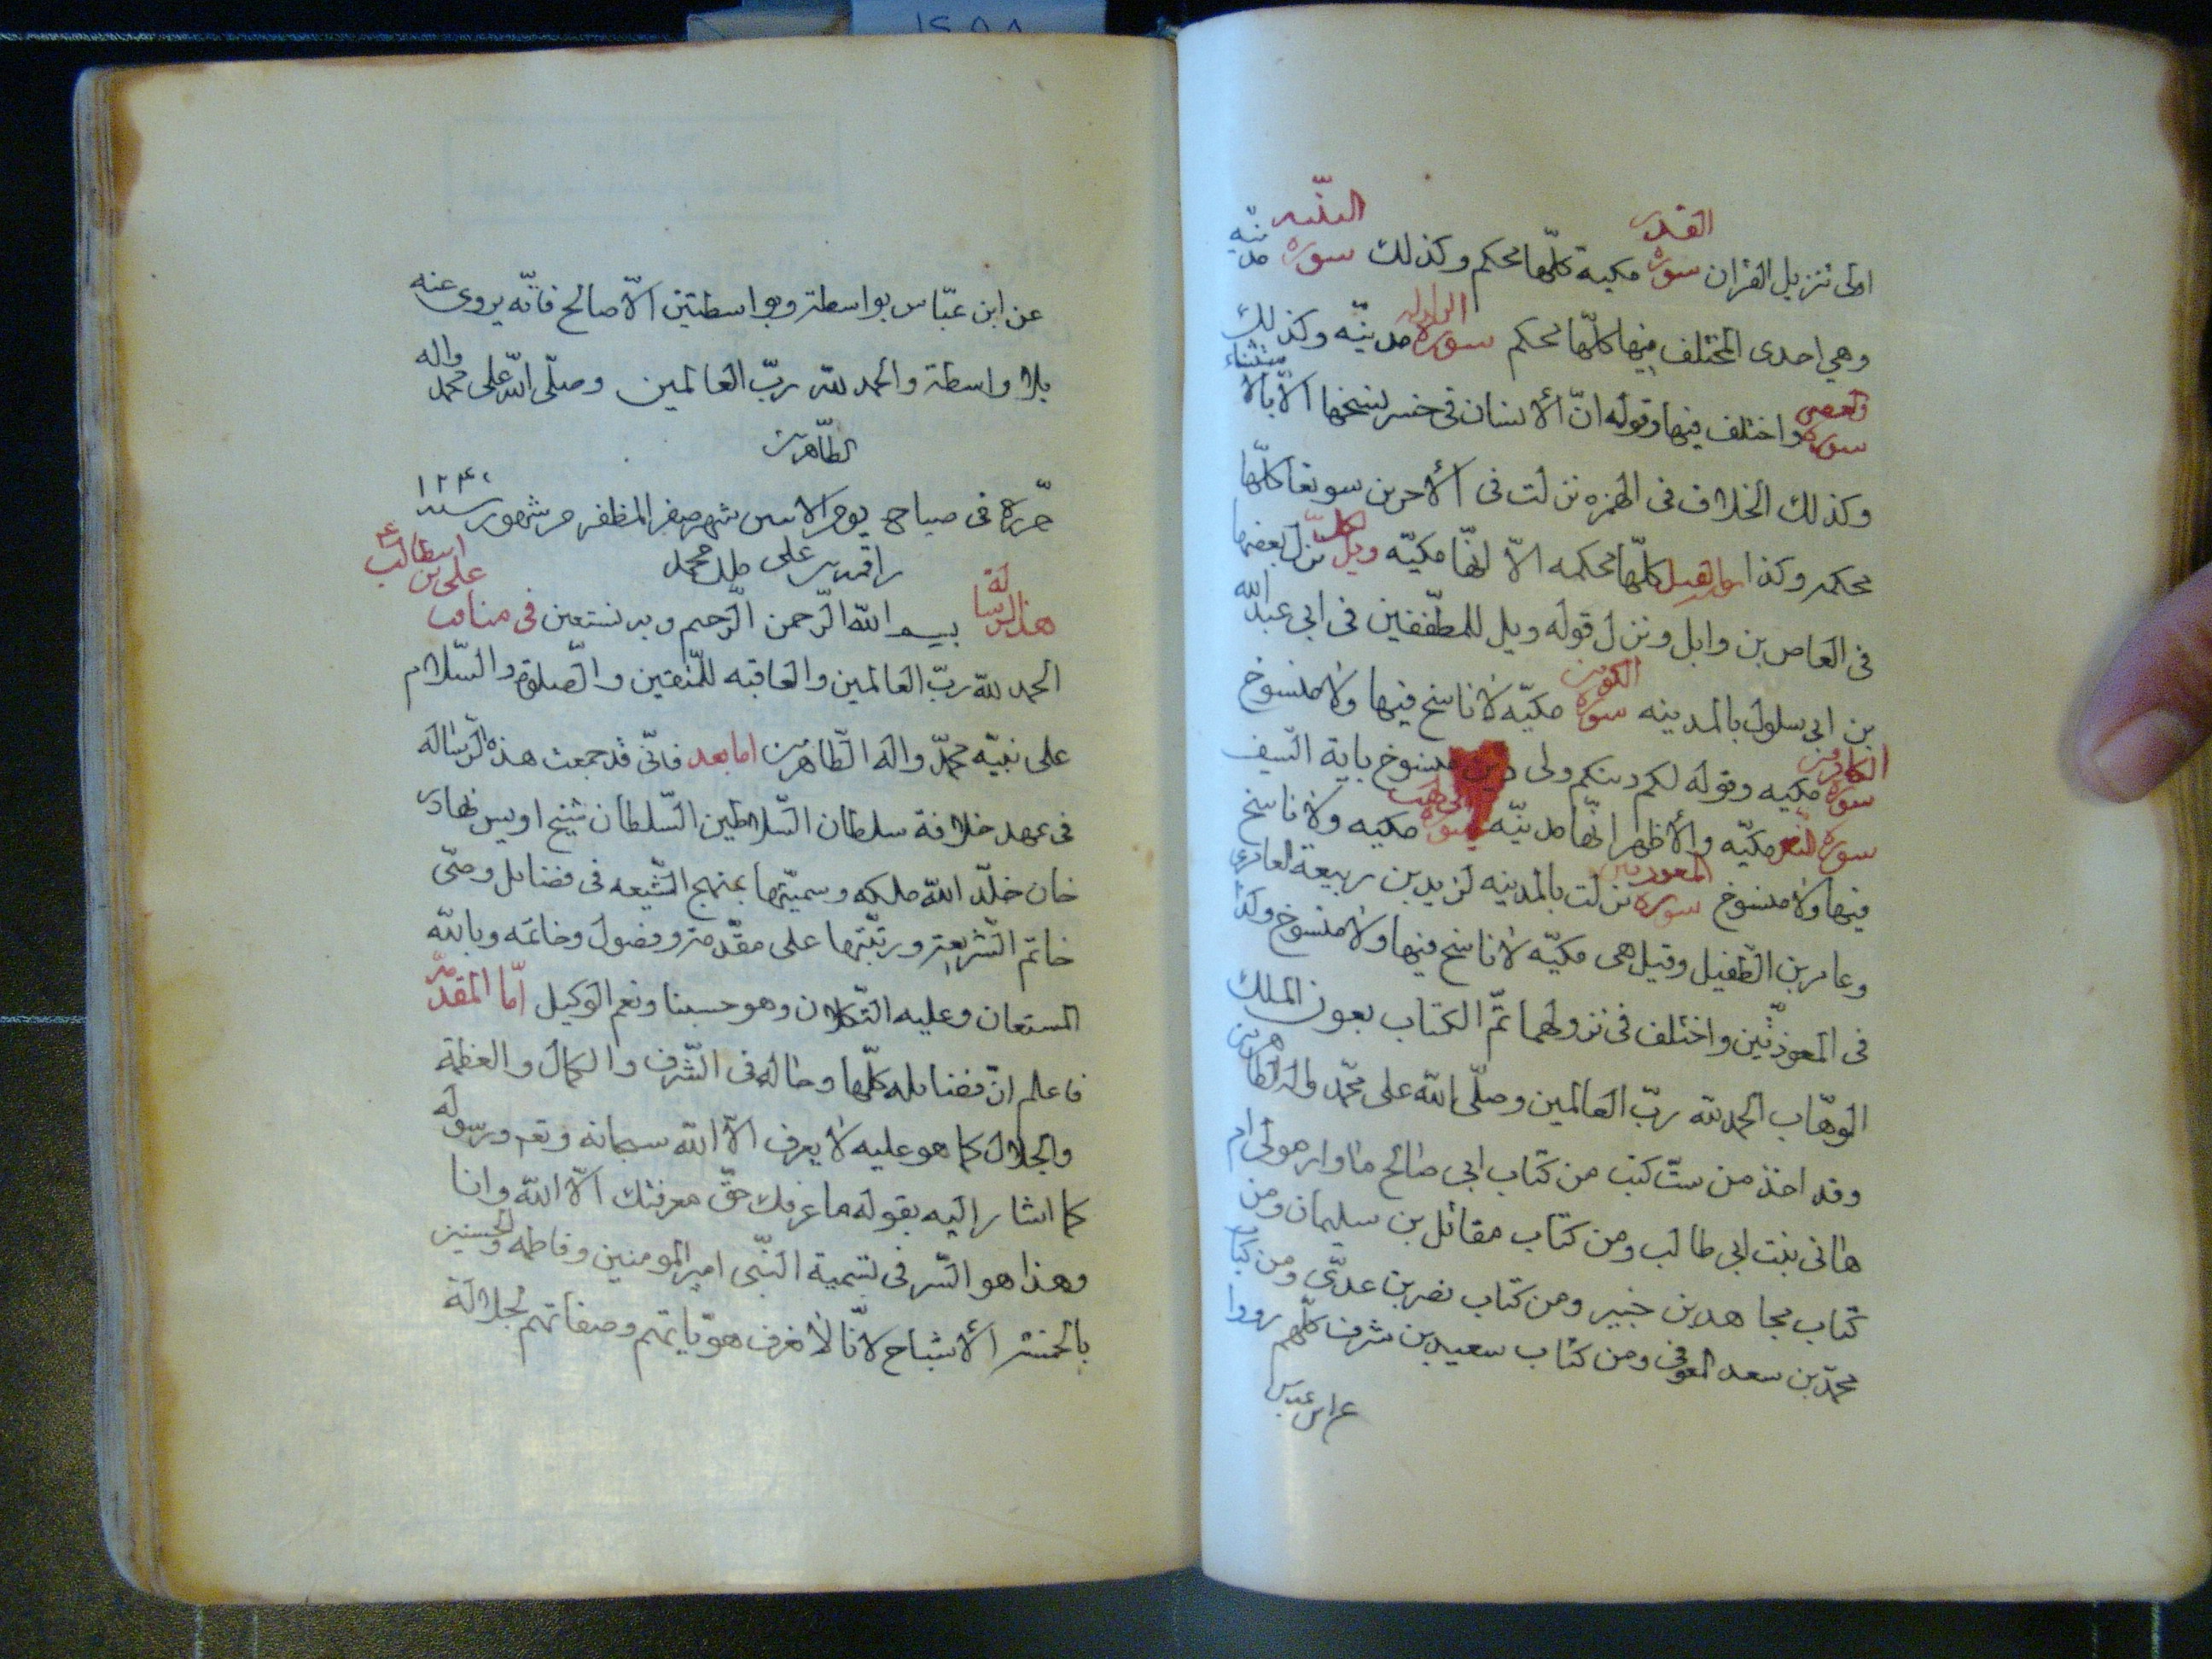 اولى تنزيل القران سورة القدر مكية كلّها محكم وكذلك سورة البينه مدنيّه
وهي احدى المختلف فيها كلّها محكم سورة الزلزله مدنيّه وكذلك
سورة والعصر واختلف فيها وقوله انّ الأنسان فى خسر نسخها الّا بالاستثناء
وكذلك الخلاف فى الهمزه نزلت فى الأخرين سوتها كلّها
محكم وكذا الفيل كلّها محكمه الّا انّها مكيّه ويل لكلّ نزل بعضها
فى العاص بن وابل ونزل قوله ويل للمطّففين فى ابى عبد اللّه
بن ابى سلول بالمدينه سورة الكوثر مكيّه لا ناسخ فيها ولا منسوخ
سورة الكافرين مكيه وقوله لكم دينكم ولى دين منسوخ باية السّيف
سورة النّصر مكيّه والأظهر انّها مدنيّه سورة ابى لهب مكيه ولا ناسخ
فيها ولا منسوخ سورة المعوذتين نزلت بالمدينه لزيد بن ربيعة العامرى
وعامر بن الطّفيل وقيل هى مكيّه لا ناسخ فيها ولا منسوخ وكذا
فى المعوذتين واختلف فى نزولهما تمّ الكتاب بعون الملك
الوهّاب الحمد للّه ربّ العالمين وصلّى اللّه على محمّد واله الطّاهرين
وقد اخذ من ستّ كتب من كتاب ابى صالح مولى ام
هانى بنت ابى طالب ومن كتاب مقاتل بن سليمان ومن
كتاب مجاهد بن جبير ومن كتاب نضر بن عدّى ومن كتاب
محمّد بن سعد العوفى ومن كتاب سعيد بن شرف كلّهم رووا
عن ابن عباس
عن ابن عبّاس بواسطة وبواسطتين الّا صالح فانّه يروى عنه
بلا واسطة والحمد للّه ربّ العالمين وصلّى اللّه على محمّد واله
الطّاهرين
حرّره فى صباح يوم الاثنين شهر صفر المظفر من شهور سنه ١٢۴٠
راقمه على ولد محمد
هذه الرّسالة بسم اللّه الرّحمن الرّحيم وبه نستعين فى مناقب على بن ابيطالب ع
الحمد للّه ربّ العالمين والعاقبه للمتّقين والصّلوة والسّلام
على نبيّه محمّد واله الطّاهرين اما بعد فانّى قد جمعت هذه الرّسالة
فى عهد خلافة سلطان السّلاطين السّلطان شيخ اويس بهادر
خان خلّد اللّه ملكه وسميّتها بمنهج الشّيعه فى فضائل وصىّ
خاتم الشّريعة ورتّبتها على مقدّمة وفصول وخاتمه وباللّه
المستعان وعليه التّكلان وهو حسبنا ونعم الوكيل امّا المقدّمة
فاعلم انّ فضائله كلّها وحاله فى الشّرف والكمال والعظمة
والجلال كما هو عليه لا يعرف الّا اللّه سبحانه وتعم ورسوله
كما اشار اليه بقوله ما عرفك حقّ معرفتك الّا اللّه وانا
وهذا هو السّر فى تسمية النّبى امير المومنين وفاطمه والحسنين
بالخمسة الأشباح لانّا لا نعرف هوّياتهم وصفاتهم لجلالة